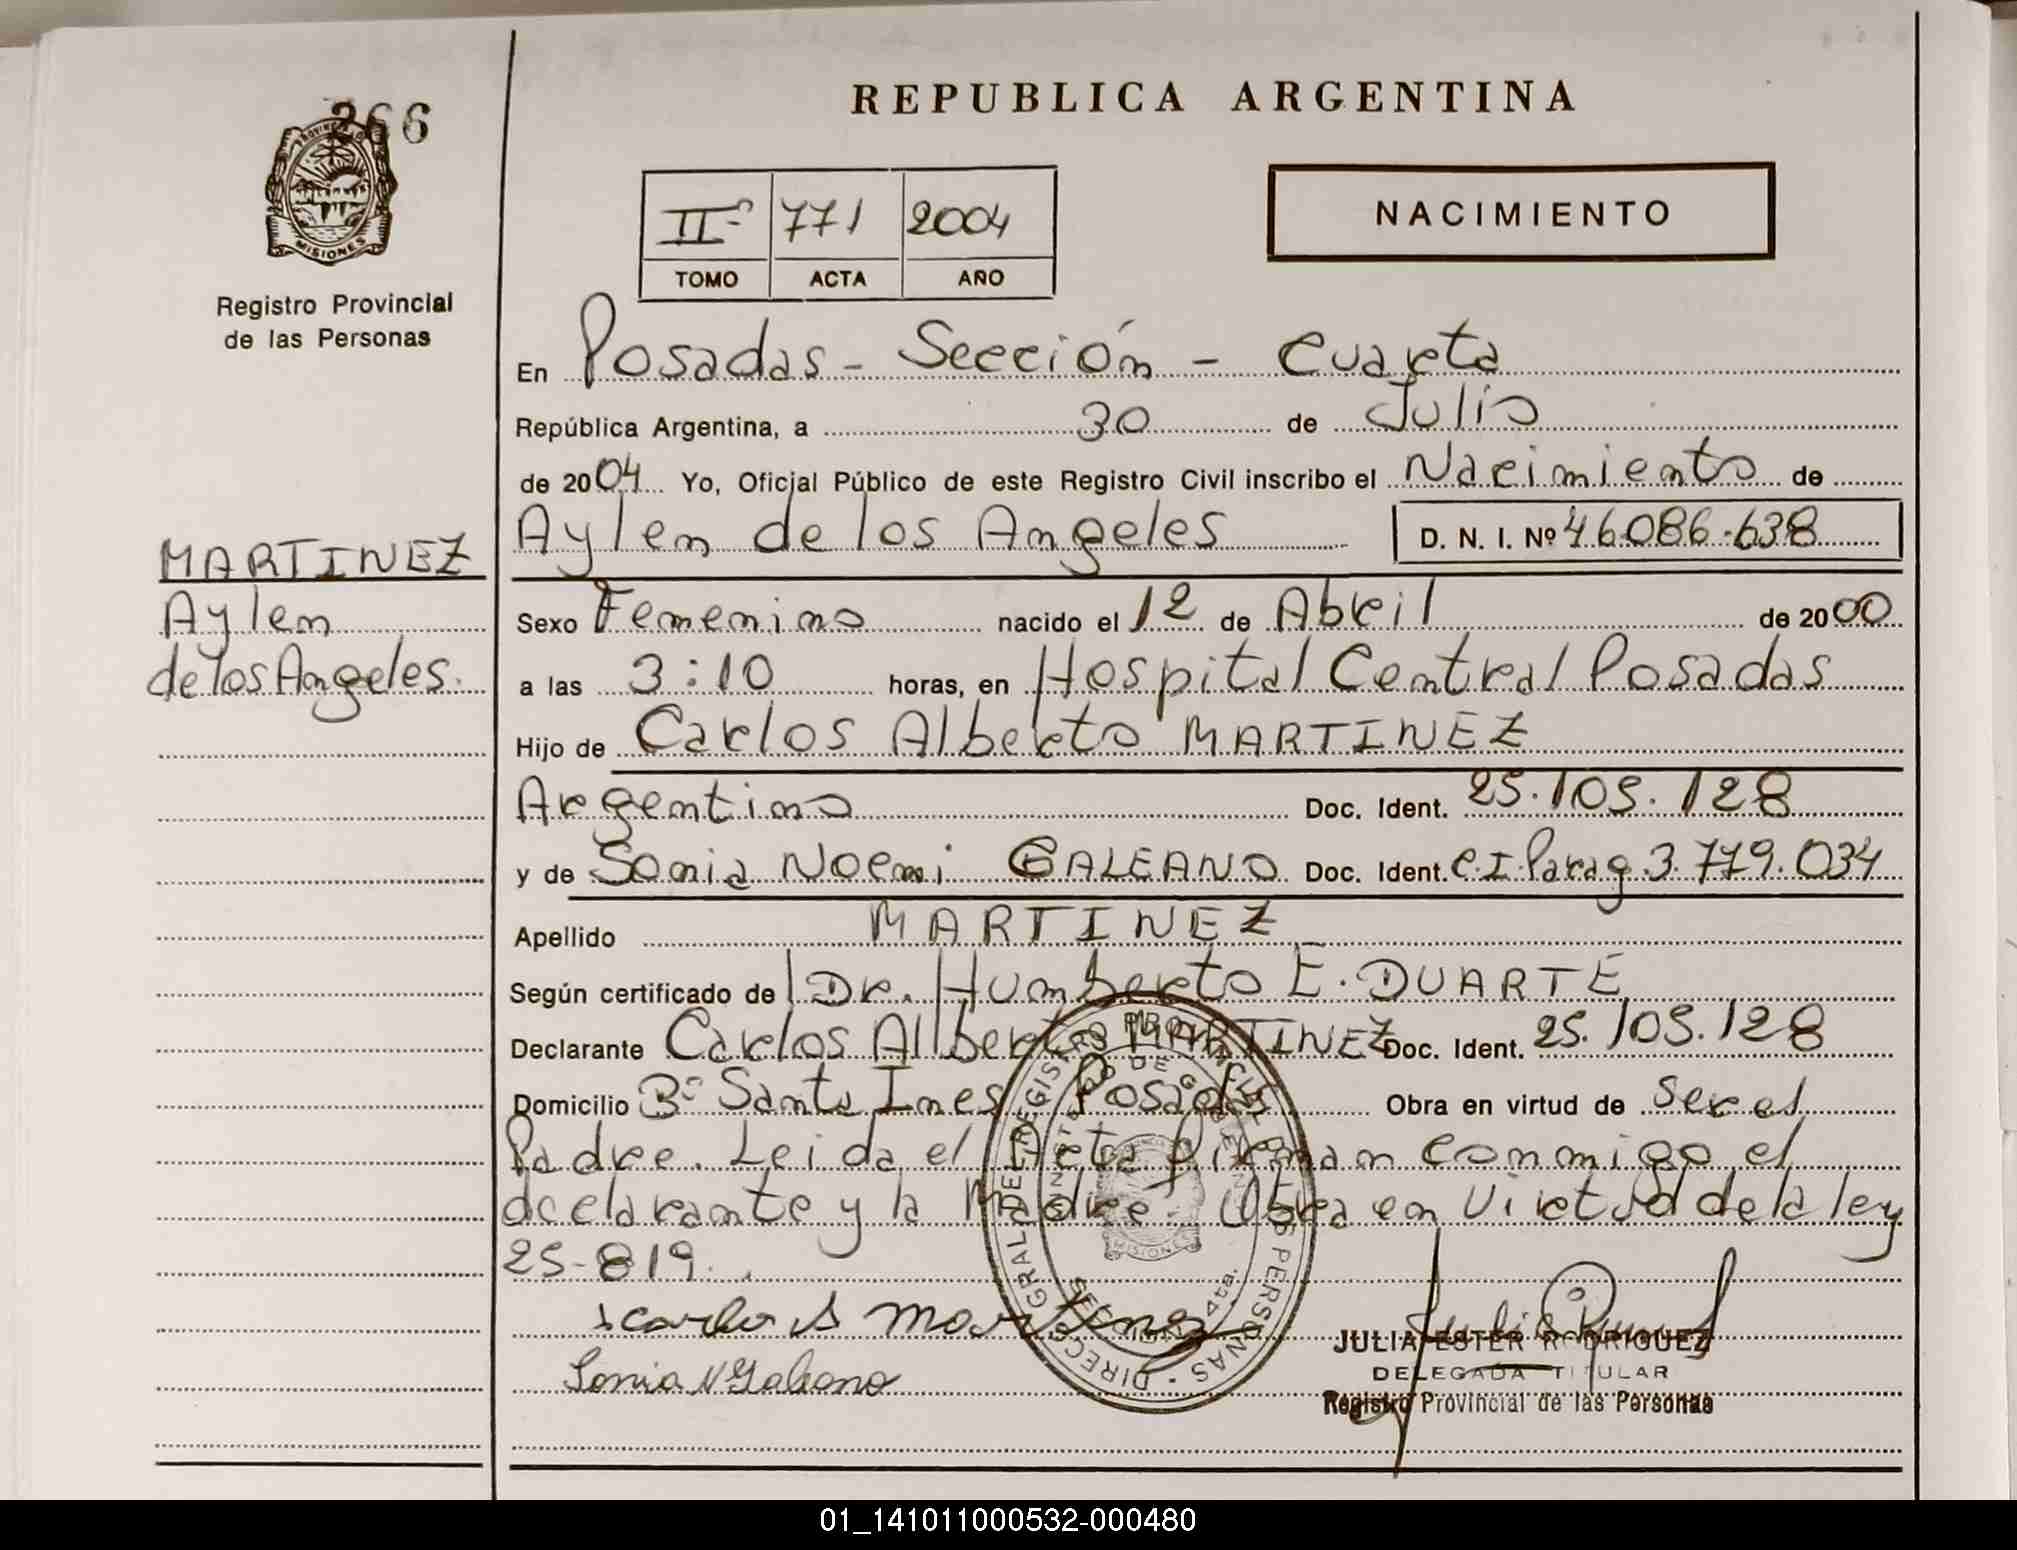 266
REPUBLICA ARGENTINA
IIº 771 2004
TOMO ACTA AÑO
NACIMIENTO
MISIONES
Registro Provincial
de las Personas
En Posadas - Sección - Cuarta
República Argentina, a 30 de Julio
de 2004 Yo, Oficial Público de este Registro Civil inscribo el Nacimiento de
Aylen de los Angeles D. N. I. Nº 46.086.638
MARTINEZ
Aylen
de los Angeles.
Sexo Femenino nacido el 12 de Abril de 2000
a las 3:10 horas, en Hospital Central Posadas
Hijo de Carlos Alberto MARTINEZ
Argentino Doc. Ident. 25.105.128
y de Sonia Noemi GALEANO Doc. Ident. C.I. Parag. 3.779.034
Apellido MARTINEZ
Según certificado de Dr. Humberto E. DUARTE
Declarante Carlos Alberto MARTINEZ Doc. Ident. 25.105.128
Domicilio Bº Santa Ines Posadas Obra en virtud de ser el
Padre. Leida el Acta firman conmigo el
declarante y la Madre. Obra en Virtud de la ley
25-819.
Carlos A Martinez
Sonia N Galeano
JULIA ESTER RODRIGUEZ
DELEGADA TITULAR
Registro Provincial de las Personas
DIRECC. GRAL. DEL REGISTRO PROVINCIAL DE LAS PERSONAS
MINISTERIO DE GOBIERNO
MISIONES
4ta.
01_141011000532-000480